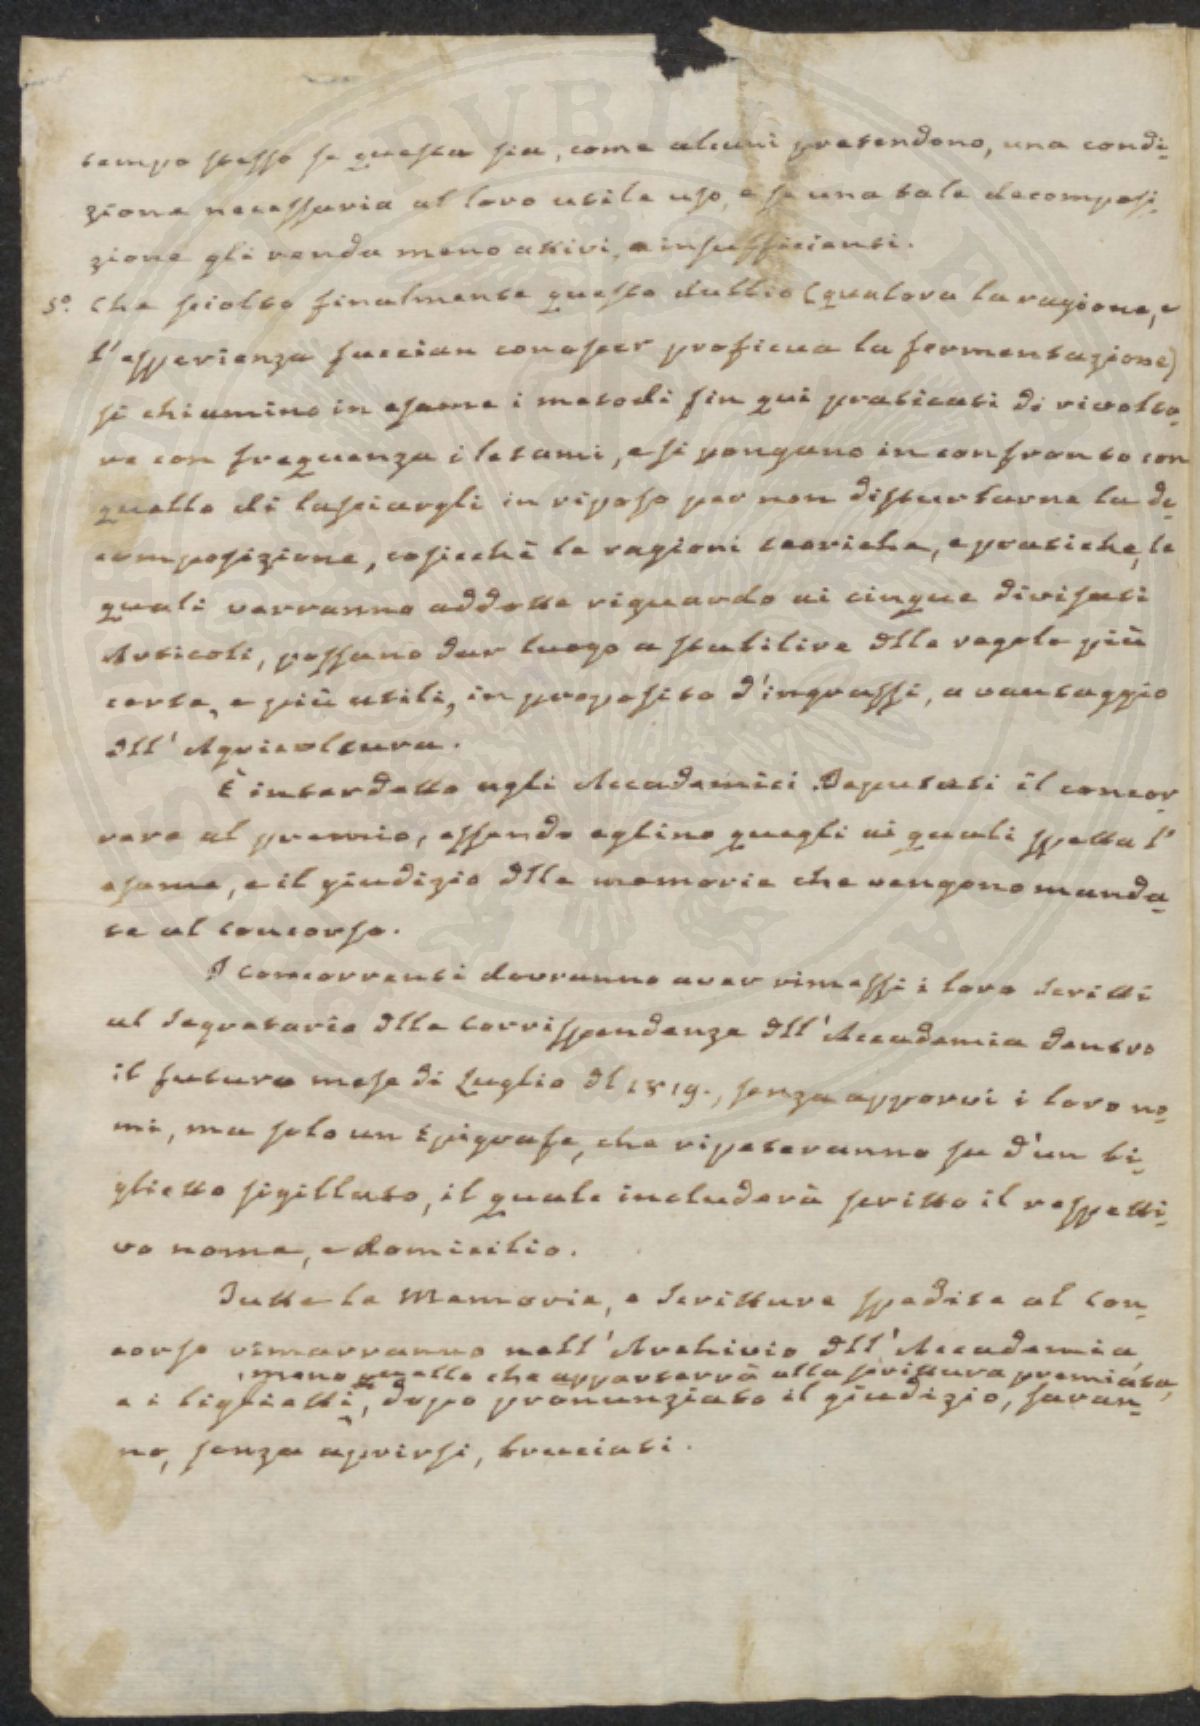 tempo stesso se questa sia, come alcuni pretendono, una condi-
zione necessaria al loro utile uso, e se una tale decomposi-
zione gli renda meno attivi, e insufficienti.
5.° Che sciolto finalmente questo dubbio (qualora la ragione, e
l'esperienza faccian conoscer proficua la fermentazione)
si chiamino in esame i metodi fin qui praticati di rivolta-
re con frequenza i letami, e si pongano in confronto con
quello di lasciargli in riposo per non disturbarne la de-
composizione, cosicchè le ragioni teoriche, e pratiche, le
quali verranno addotte riguardo ai cinque divisati
Articoli, possano dar luogo a stabilire dlle regole più
certe, e più utili, in proposito d'ingrassi, a vantaggio
dll'Agricoltura.
È interdetto agli Accademici Deputati il concor-
rere al premio, essendo eglino quegli ai quali spetta l'
esame, e il giudizio dlle memorie che vengono manda-
te al concorso.
I concorrenti dovranno aver rimessi i loro scritti
al Segretario dlle corrispondenze dll'Accademia dentro
il futuro mese di Luglio dl 1819., senza apporvi i loro no-
mi, ma solo un Epigrafe, che ripeteranno su d'un bi-
glietto sigillato, il quale includerà scritto il respetti-
vo nome, e domicilio.
Tutte le Memorie, e Scritture spedite al con-
corso rimarranno nell'Archivio dll'Accademia,
, meno quello che apparterrà alla scrittura premiata,
e i biglietti, dopo pronunziato il giudizio, saran-
no, senza aprirsi, bruciati.